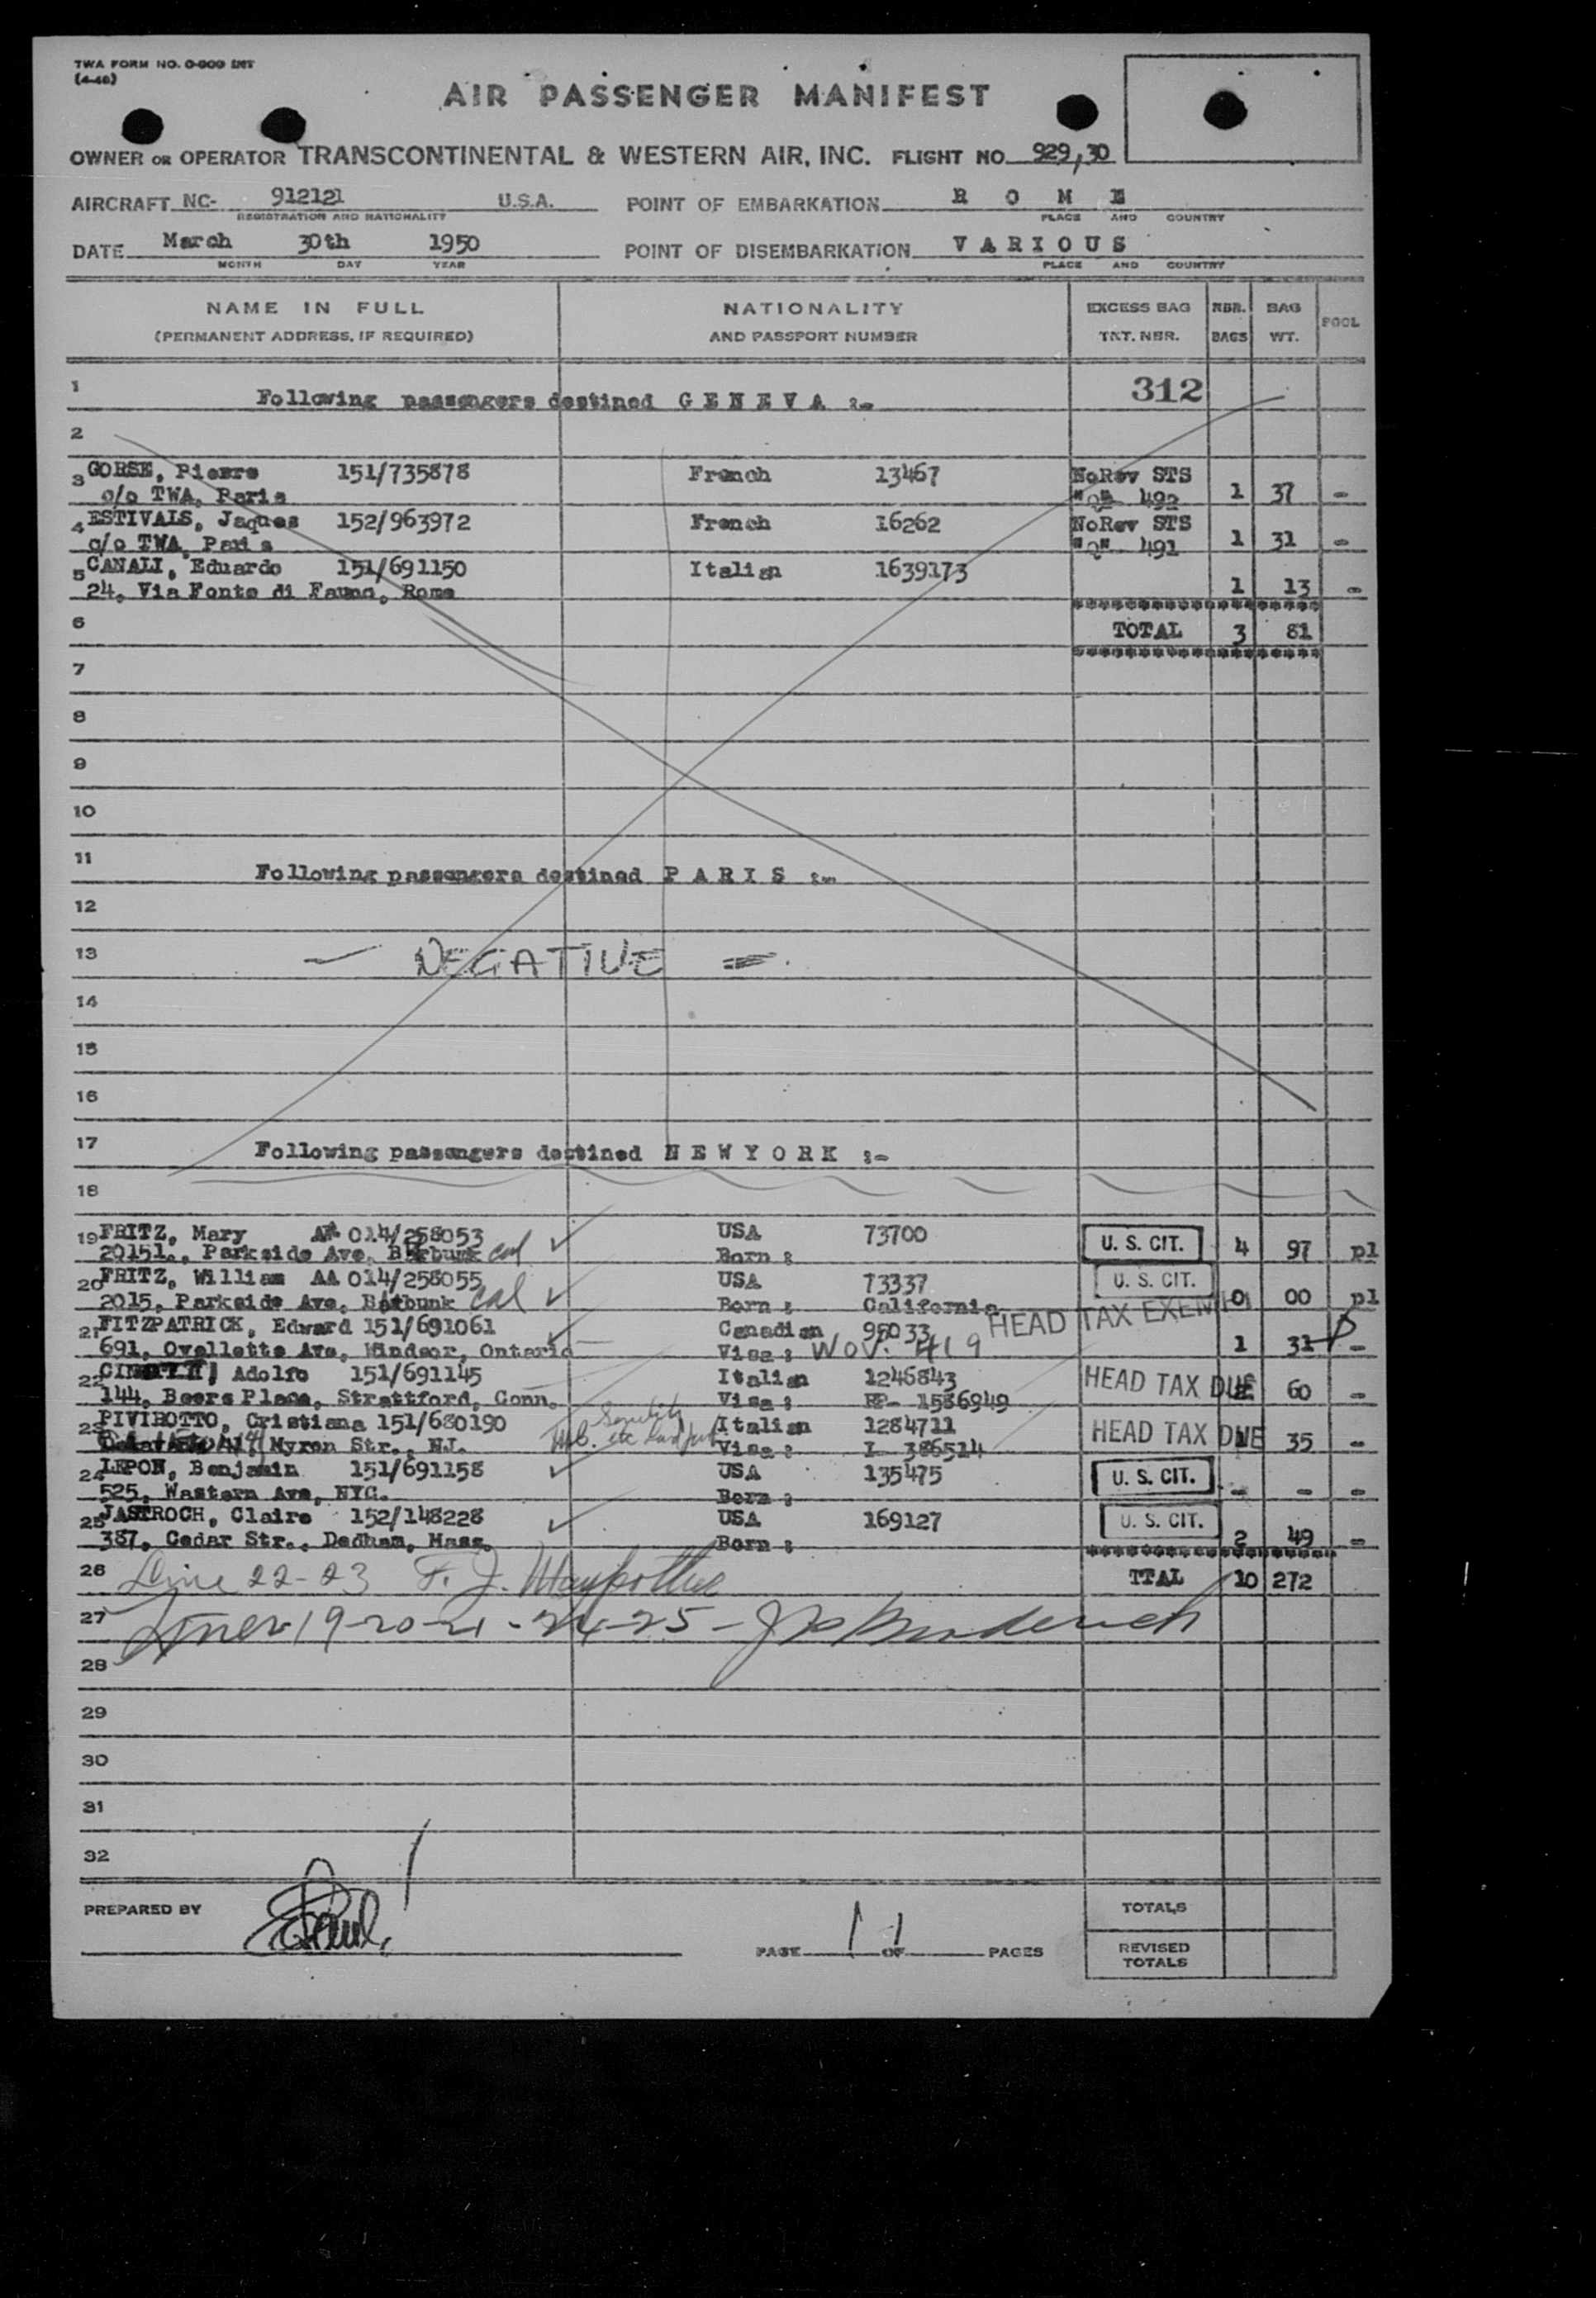 TWA FORM NO. O-800 INT
(4-46)
AIR PASSENGER MANIFEST
OWNER OR OPERATOR TRANSCONTINENTAL & WESTERN AIR, INC. FLIGHT NO. 929,30
AIRCRAFT NC- 912121 U.S.A. POINT OF EMBARKATION R O M E
REGISTRATION AND NATIONALITY PLACE AND COUNTRY
DATE March 30th 1950 POINT OF DISEMBARKATION V A R I O U S
MONTH DAY YEAR PLACE AND COUNTRY
NAME IN FULL NATIONALITY EXCESS BAG NBR. BAG POOL
(PERMANENT ADDRESS, IF REQUIRED) AND PASSPORT NUMBER TKT. NBR. BAGS WT.
1 Following passengers destined G E N E V A :- 312
2
3 GORSE, Pierre 151/735878 French 13467 NoRev STS
c/o TWA, Paris "O" 492 1 37 -
4 ESTIVALS, Jaques 152/963972 French 16262 NoRev STS
c/o TWA Paris "O" 491 1 31 -
5 CANALI, Eduardo 151/691150 Italian 1639173
24, Via Fonte di Fauno, Rome 1 13 -
6 TOTAL 3 81
7
8
9
10
11 Following passengers destined P A R I S :-
12
13 - NEGATIVE =
14
15
16
17 Following passengers destined N E W Y O R K :-
18
19 FRITZ, Mary 014/258053 USA 73700 U. S. CIT. 4 97 pl
Parkside Ave, Burbunk Cal Born :
20 FRITZ, William AA 014/258055 USA 73337 U. S. CIT.
2015, Parkside Ave, Burbunk Cal Born : California 0 00 pl
21 FITZPATRICK, Edward 151/691061 Canadian 95033 HEAD TAX EXEMPT
691, Ovellette Ave, Windsor, Ontario Visa : 1 31 -
22 Adolfo 151/691145 Italian 1246843 HEAD TAX DUE
144, Beers Place, Strattford, Conn. Visa : 1586949 60 -
23 PIVIROTTO, Cristiana 151/680190 Italian 1284711 HEAD TAX DUE
Myron Str., NJ. Visa : I- 386514 35 -
24 LEPON, Benjamin 151/691158 USA 135475 U. S. CIT.
525, Western Ave, NYC. Born : - - -
25 JASTROCH, Claire 152/148228 USA 169127 U. S. CIT.
387, Cedar Str., Dedham, Mass. Born : 2 49 -
26 Line 22-23 F. J. TTAL 10 272
27 Lines 19-20-21-24-25 -
28
29
30
31
32
PREPARED BY TOTALS
PAGE 1 OF 1 PAGES REVISED
TOTALS